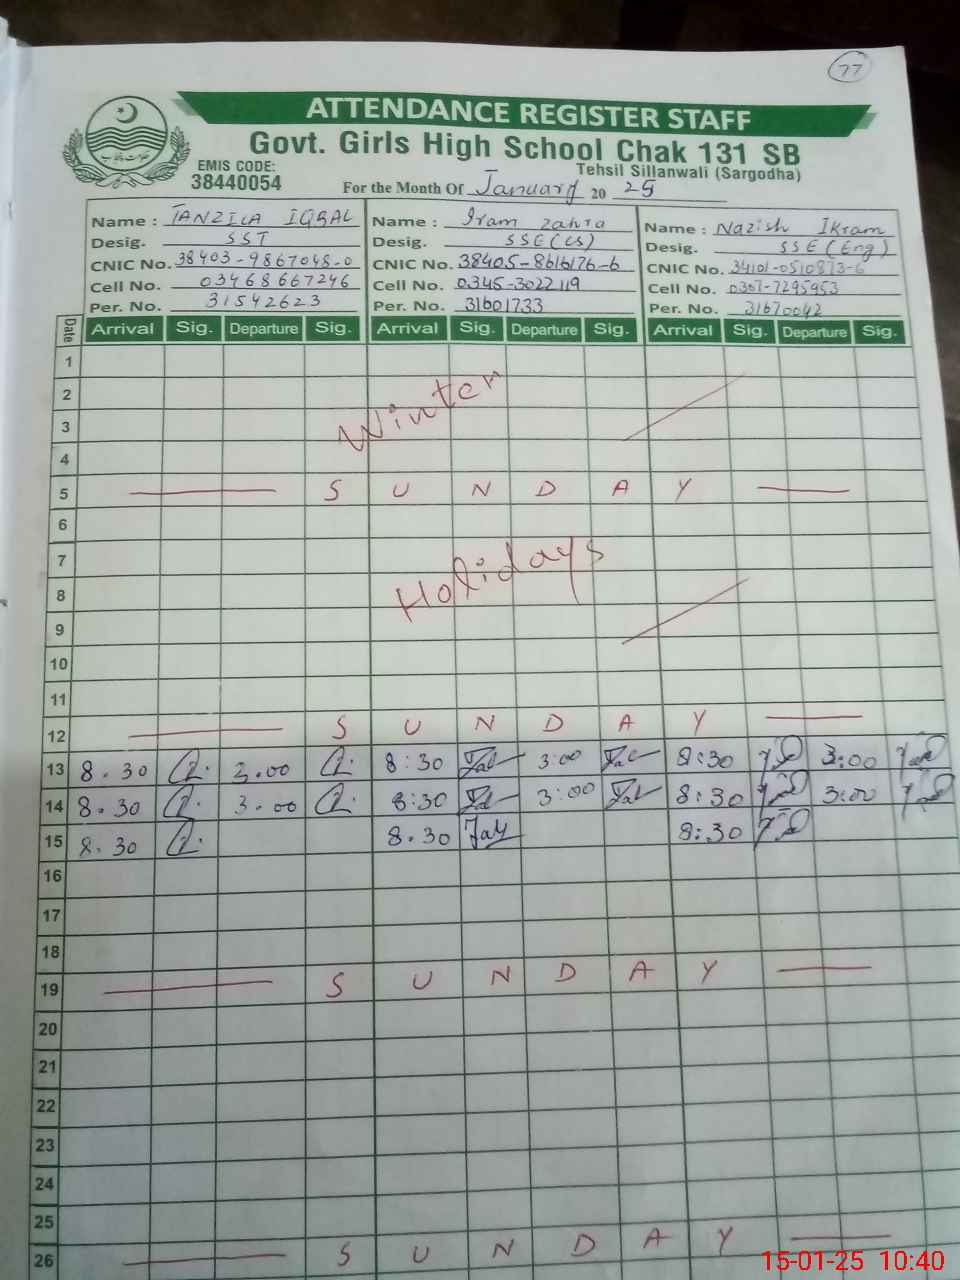 77
ATTENDANCE REGISTER STAFF
Govt. Girls High School Chak 131 SB
EMIS CODE:
38440054
Tehsil Sillanwali (Sargodha)
For the Month Of January 20 25
Name : TANZILA IQBAL Name : Iram Zahra Name : Nazish Ikram
Desig. SST Desig. SSE(CS) Desig. SSE(Eng)
CNIC No. 38403-9867048-0 CNIC No. 38405-8616176-6 CNIC No. 34101-0510873-6
Cell No. 03468667246 Cell No. 0345-3022119 Cell No. 0307-7295953
Per. No. 31542623 Per. No. 31601733 Per. No. 31670042
Date Arrival Sig. Departure Sig. Arrival Sig. Departure Sig. Arrival Sig. Departure Sig.
1
2 Winter
3
4
5 SUNDAY
6
7 Holidays
8
9
10
11
12 SUNDAY
13 8.30 3.00 8:30 3:00 8:30 3:00
14 8.30 3.00 8:30 3:00 8:30 3:00
15 8.30 8.30 8:30
16
17
18
19 SUNDAY
20
21
22
23
24
25
26 SUNDAY
15-01-25 10:40